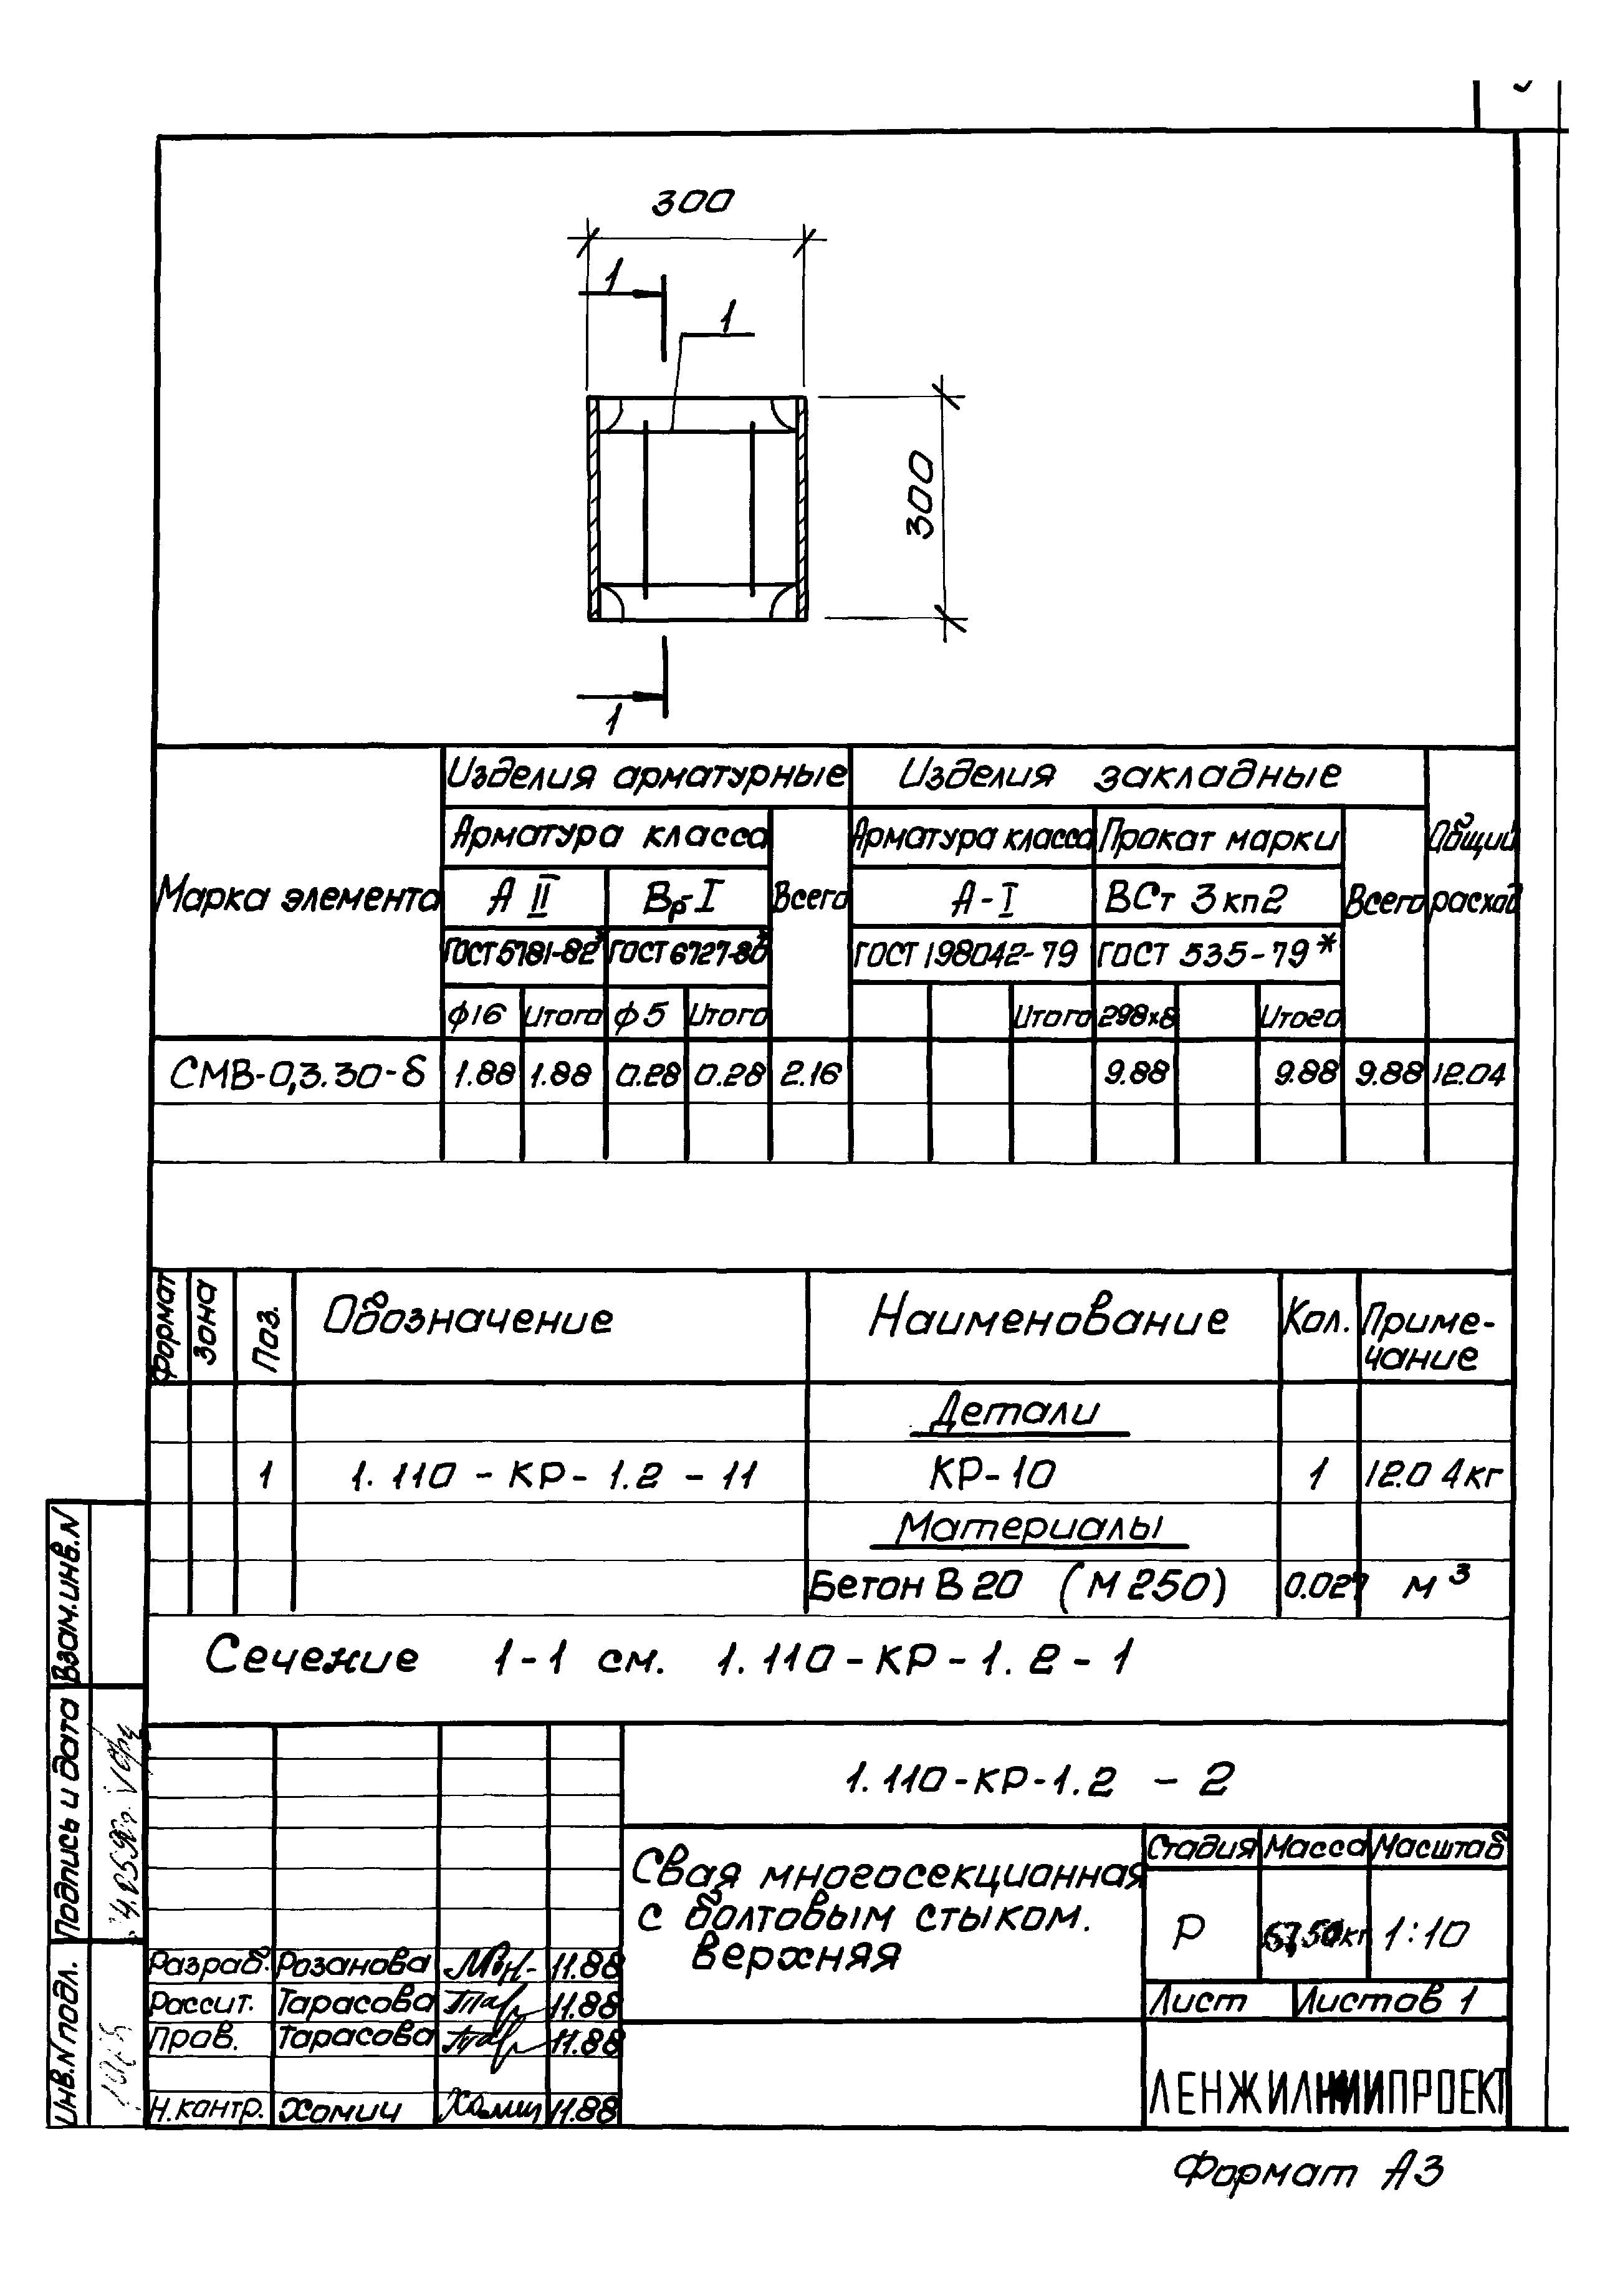 300
1
1
300
1
Марка элемента
Изделия арматурные
Изделия закладные
Общий расход
Арматура класса
Всего
Арматура класса
Прокат марки
Всего
А II
Вр-I
А-I
ВСт 3кп2
ГОСТ 5781-82*
ГОСТ 6727-80*
ГОСТ 198042-79
ГОСТ 535-79*
ф16
Итого
ф5
Итого
Итого
298х8
Итого
СМВ-0,3.30-б 1.88 1.88 0.28 0.28 2.16 9.88 9.88 9.88 12.04
Формат
Зона
Поз.
Обозначение
Наименование
Кол.
Приме-
чание
Детали
1 1.110-КР-1.2-11 КР-10 1 12.04кг
Материалы
Бетон В20 (М250) 0.027 м³
Сечение 1-1 см. 1.110-КР-1.2-1
Взам.инв.N
Подпись и дата
Инв.N подл.
1.110-КР-1.2 - 2
Свая многосекционная
с болтовым стыком.
Верхняя
Стадия Масса Масштаб
Р 1:10
Лист Листов 1
Разраб. Розанова 11.88
Рассит. Тарасова 11.88
Пров. Тарасова 11.88
Н.контр. Хомич Хомич 11.88
ЛЕНЖИЛНИИПРОЕКТ
Формат А3